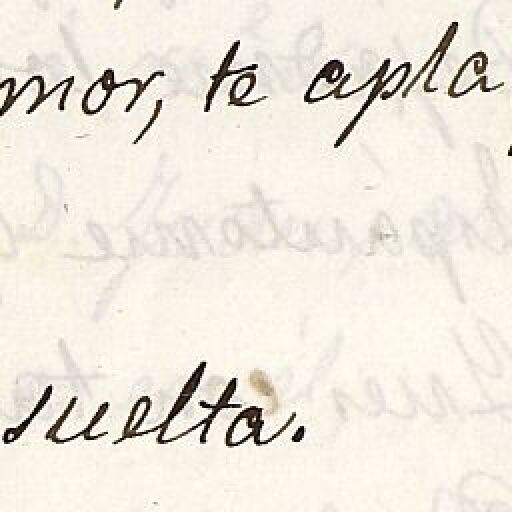 mor, te apla
suelta.